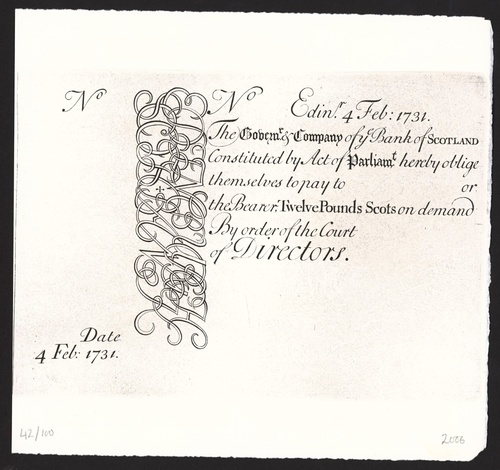 Nº
Nº
Edinʳ 4 Feb: 1731.
The Governʳ & Company of yᵉ Bank of SCOTLAND
Constituted by Act of Parliamᵗ hereby oblige
themselves to pay to or
the Bearer, Twelve Pounds Scots on demand
By order of the Court
of Directors.
Date
4 Feb: 1731.
42/100
2006